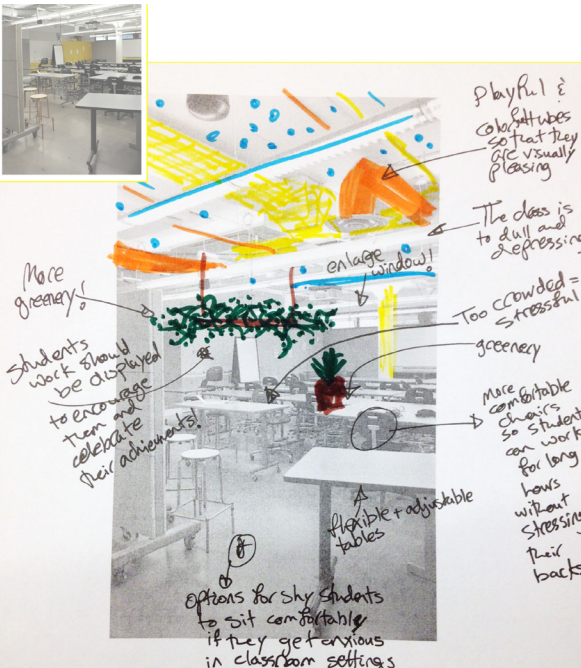 Playful &
colorful tubes
so that they
are visually
pleasing
The class is
to dull and
depressing
More
greenery!
enlarge
window!
Too crowded =
stressful
greenery
students
work should
be displayed
to encourage
them and
celebrate
their achiements!
More
comfortable
chairs
so students
can work
for long
hours
without
stressing
their
backs
flexible + adjustable
tables
options for shy students
to sit comfortably
if they get anxious
in classroom settings